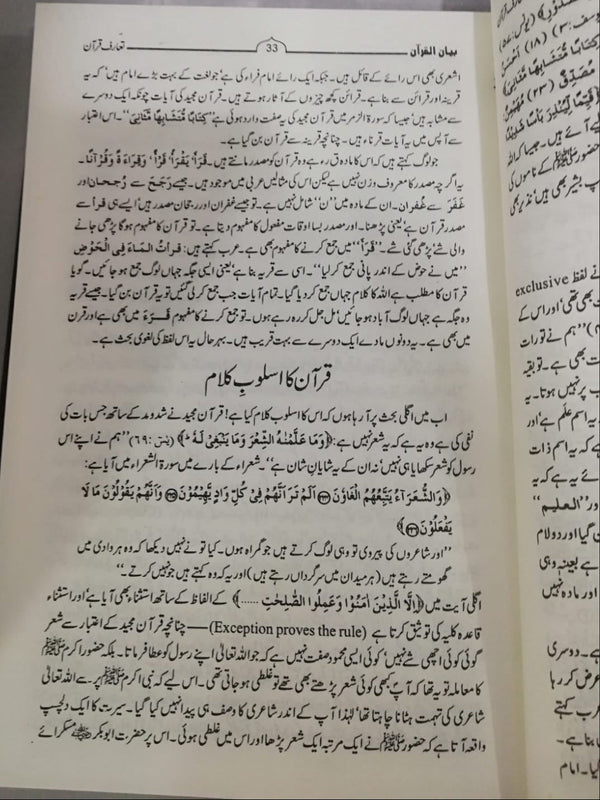 تعارف قرآن
33
بیان القرآن
اشعری بھی اس رائے کے قائل ہیں۔ جبکہ ایک رائے امام فراء کی ہے‘ جو لغت کے بہت بڑے امام ہیں‘ کہ یہ
قرینہ اور قرائن سے بنا ہے۔ قرائن کچھ چیزوں کے آثار ہوتے ہیں۔ قرآن مجید کی آیات چونکہ ایک دوسرے
سے مشابہ ہیں‘ جیسا کہ سورۃ الزمر میں قرآن مجید کی یہ صفت وارد ہوئی ہے‘ ’’کِتَابًا مُّتَشَابِھًا مَّثَانِیَ‘‘۔ اس اعتبار
سے آپس میں یہ آیات قرناء ہیں۔ چنانچہ قرینہ سے قرآن بن گیا ہے۔
جو لوگ کہتے ہیں کہ اس کا مادہ ق ر ء ہے وہ قرآن کو مصدر مانتے ہیں۔ قَرَأَ‘ یَقْرَأُ‘ قَرْأً‘ وَقِرَاءَۃً وَقُرْآنًا۔
یہ اگرچہ مصدر کا معروف وزن نہیں ہے لیکن اس کی مثالیں عربی میں موجود ہیں۔ جیسے رَجَحَ سے رُجحان اور
غَفَرَ سے غُفران۔ ان کے مادہ میں ’’ن‘‘ شامل نہیں ہے۔ تو جیسے غفران اور رجحان مصدر ہیں ایسے ہی قرأ سے
مصدر قرآن ہے‘ یعنی پڑھنا۔ اور مصدر بسا اوقات مفعول کا مفہوم دیتا ہے۔ تو قرآن کا مفہوم ہو گا پڑھی جانے
والی شے‘ پڑھی گئی شے۔ ’’قَرَأَ‘‘ میں جمع کرنے کا مفہوم بھی ہے۔ عرب کہتے ہیں: قرأتُ الماءَ فِی الْحَوْضِ
’’میں نے حوض کے اندر پانی جمع کر لیا‘‘۔ اسی سے قریہ بنا ہے‘ یعنی ایسی جگہ جہاں لوگ جمع ہو جائیں۔ گویا
قرآن کا مطلب ہے اللہ کا کلام جہاں جمع کر دیا گیا۔ تمام آیات جب جمع کر لی گئیں تو یہ قرآن بن گیا۔ جیسے قریہ
وہ جگہ ہے جہاں لوگ آباد ہو جائیں‘ مل جل کر رہ رہے ہوں۔ تو جمع کرنے کا مفہوم قَرَءَ میں بھی ہے اور قرن
میں بھی ہے۔ یہ دونوں مادے ایک دوسرے سے بہت قریب ہیں۔ بہرحال یہ اس لفظ کی لغوی بحث ہے۔
قرآن کا اسلوبِ کلام
اب میں اگلی بحث پر آ رہا ہوں کہ اس کا اسلوب کلام کیا ہے! قرآن مجید نے شد و مد کے ساتھ جس بات کی
نفی کی ہے وہ یہ ہے کہ یہ شعر نہیں ہے: ﴿وَمَا عَلَّمْنٰهُ الشِّعْرَ وَمَا یَنْبَغِیْ لَهٗ ؕ﴾ (یٰس:۶۹) ’’ہم نے اپنے اس
رسول کو شعر سکھایا ہی نہیں‘ نہ ان کے یہ شایانِ شان ہے‘‘۔ شعراء کے بارے میں سورۃ الشعراء میں آیا ہے:
﴿وَالشُّعَرَآءُ یَتَّبِعُهُمُ الْغَاوٗنَ ۝ اَلَمْ تَرَ اَنَّهُمْ فِیْ كُلِّ وَادٍ یَّهِیْمُوْنَ ۝ وَاَنَّهُمْ یَقُوْلُوْنَ مَا لَا
یَفْعَلُوْنَ ۝﴾
’’اور شاعروں کی پیروی تو وہی لوگ کرتے ہیں جو گمراہ ہوں۔ کیا تو نے نہیں دیکھا کہ وہ ہر وادی میں
گھومتے رہتے ہیں (ہر میدان میں سرگرداں رہتے ہیں) اور یہ کہ وہ کہتے ہیں جو نہیں کرتے۔‘‘
اگلی آیت میں ﴿اِلَّا الَّذِیْنَ اٰمَنُوْا وَعَمِلُوا الصّٰلِحٰتِ ......﴾ کے الفاظ کے ساتھ استثناء بھی آیا ہے‘ اور استثناء
قاعدہ کلیہ کی توثیق کرتا ہے (Exception proves the rule) — چنانچہ قرآن مجید کے اعتبار سے شعر
گوئی کوئی اچھی شے نہیں‘ کوئی ایسی محمود صفت نہیں ہے کہ جو اللہ تعالیٰ اپنے رسول کو عطا فرماتا۔ بلکہ حضور اکرم ﷺ
کا معاملہ تو یہ تھا کہ آپ کبھی کوئی شعر پڑھتے بھی تھے تو غلطی ہو جاتی تھی۔ اس لیے کہ نبی اکرم ﷺ پر سے اللہ تعالیٰ
شاعری کی تہمت ہٹانا چاہتا تھا‘ لہٰذا آپ کے اندر شاعری کا وصف ہی پیدا نہیں کیا گیا۔ سیرت کا ایک دلچسپ
واقعہ آتا ہے کہ حضور ﷺ نے ایک مرتبہ ایک شعر پڑھا اور اس میں غلطی ہوئی۔ اس پر حضرت ابوبکر ؓ مسکرائے